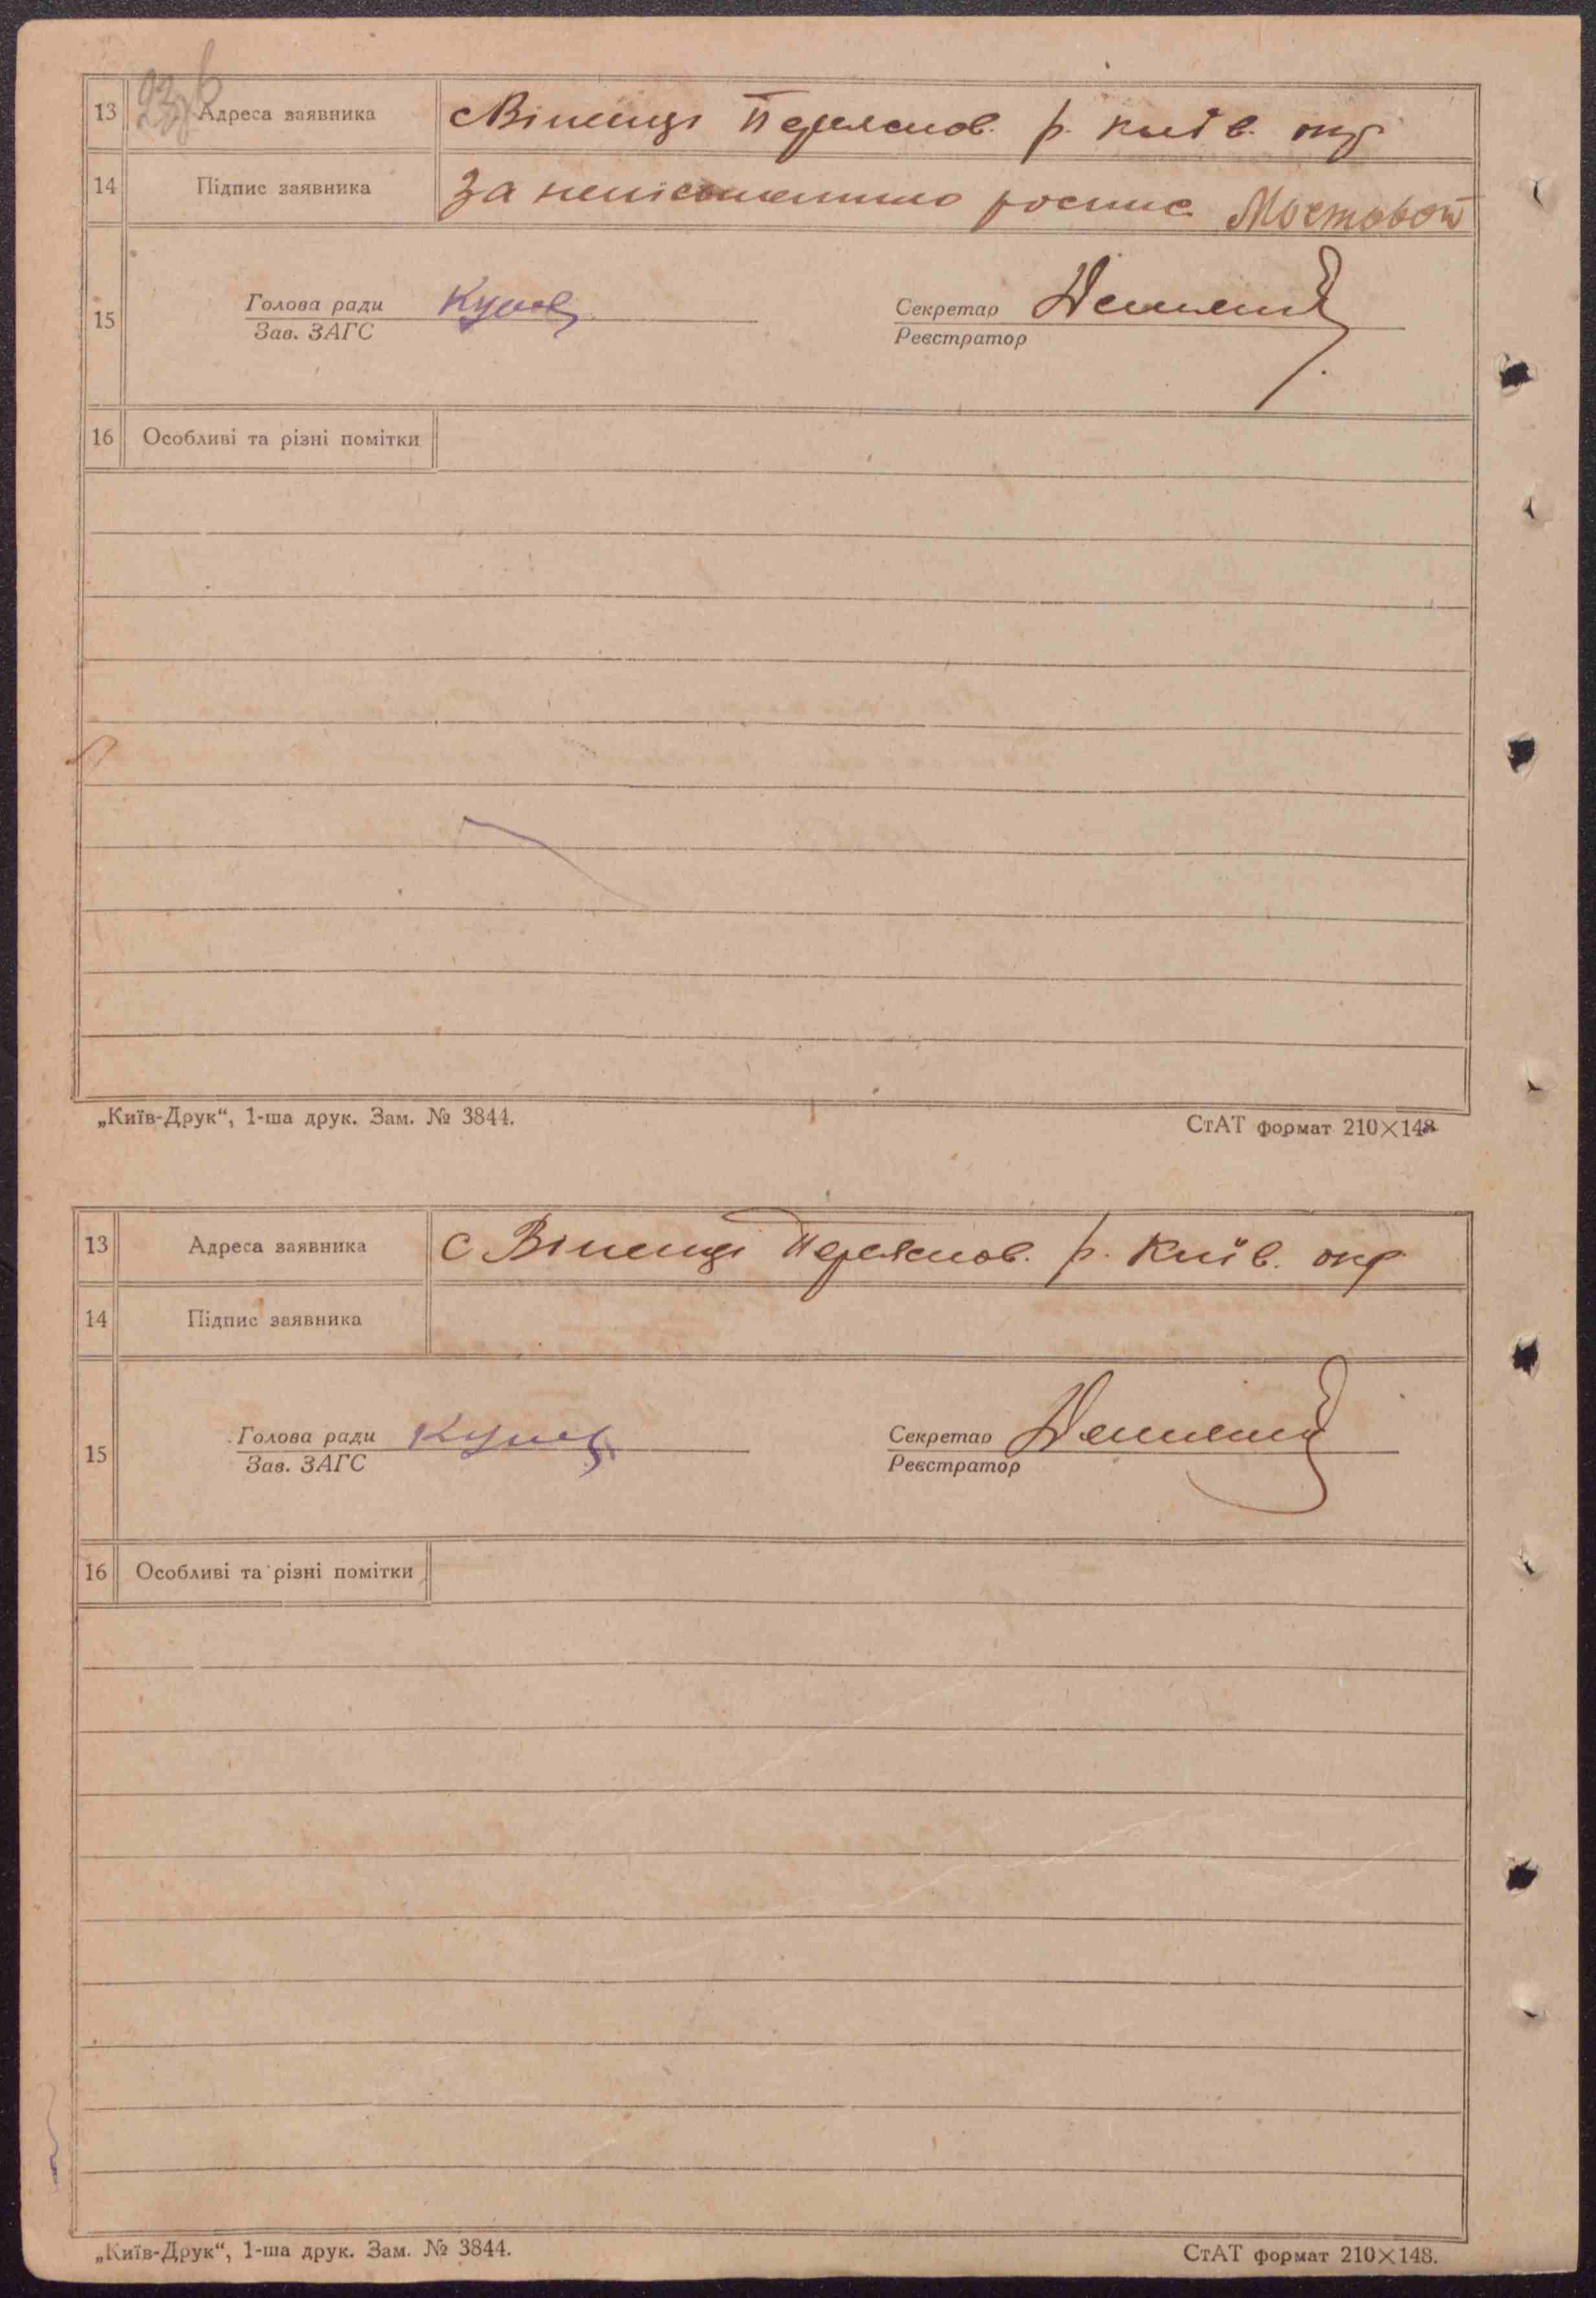 13 Адреса заявника с Віненці Переяслов. р. Київ. окр
14 Підпис заявника За неписьменного роспис. Мостовой
15 Голова ради Секретар
Зав. ЗАГС Реєстратор
16 Особливі та різні помітки
„Київ-Друк“, 1-ша друк. Зам. № 3844. СтАТ формат 210×148
13 Адреса заявника с Віненці Переяслов. р. Київ. окр
14 Підпис заявника
15 Голова ради Секретар
Зав. ЗАГС Реєстратор
16 Особливі та різні помітки
„Київ-Друк“, 1-ша друк. Зам. № 3844. СтАТ формат 210×148.